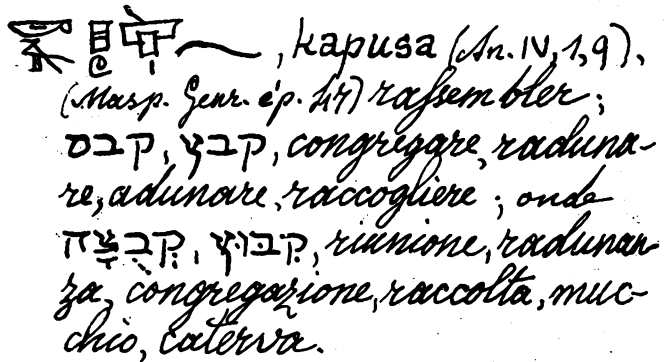 , kapusa (An. IV, 1, 9),
(Masp. Genr. ép. 47) rassembler;
קבץ, קבס, congregare, raduna-
re, adunare, raccogliere; onde
קִבּוּץ, קְבֻצָה, riunione, radunan
za, congregazione, raccolta, muc-
chio, caterva.